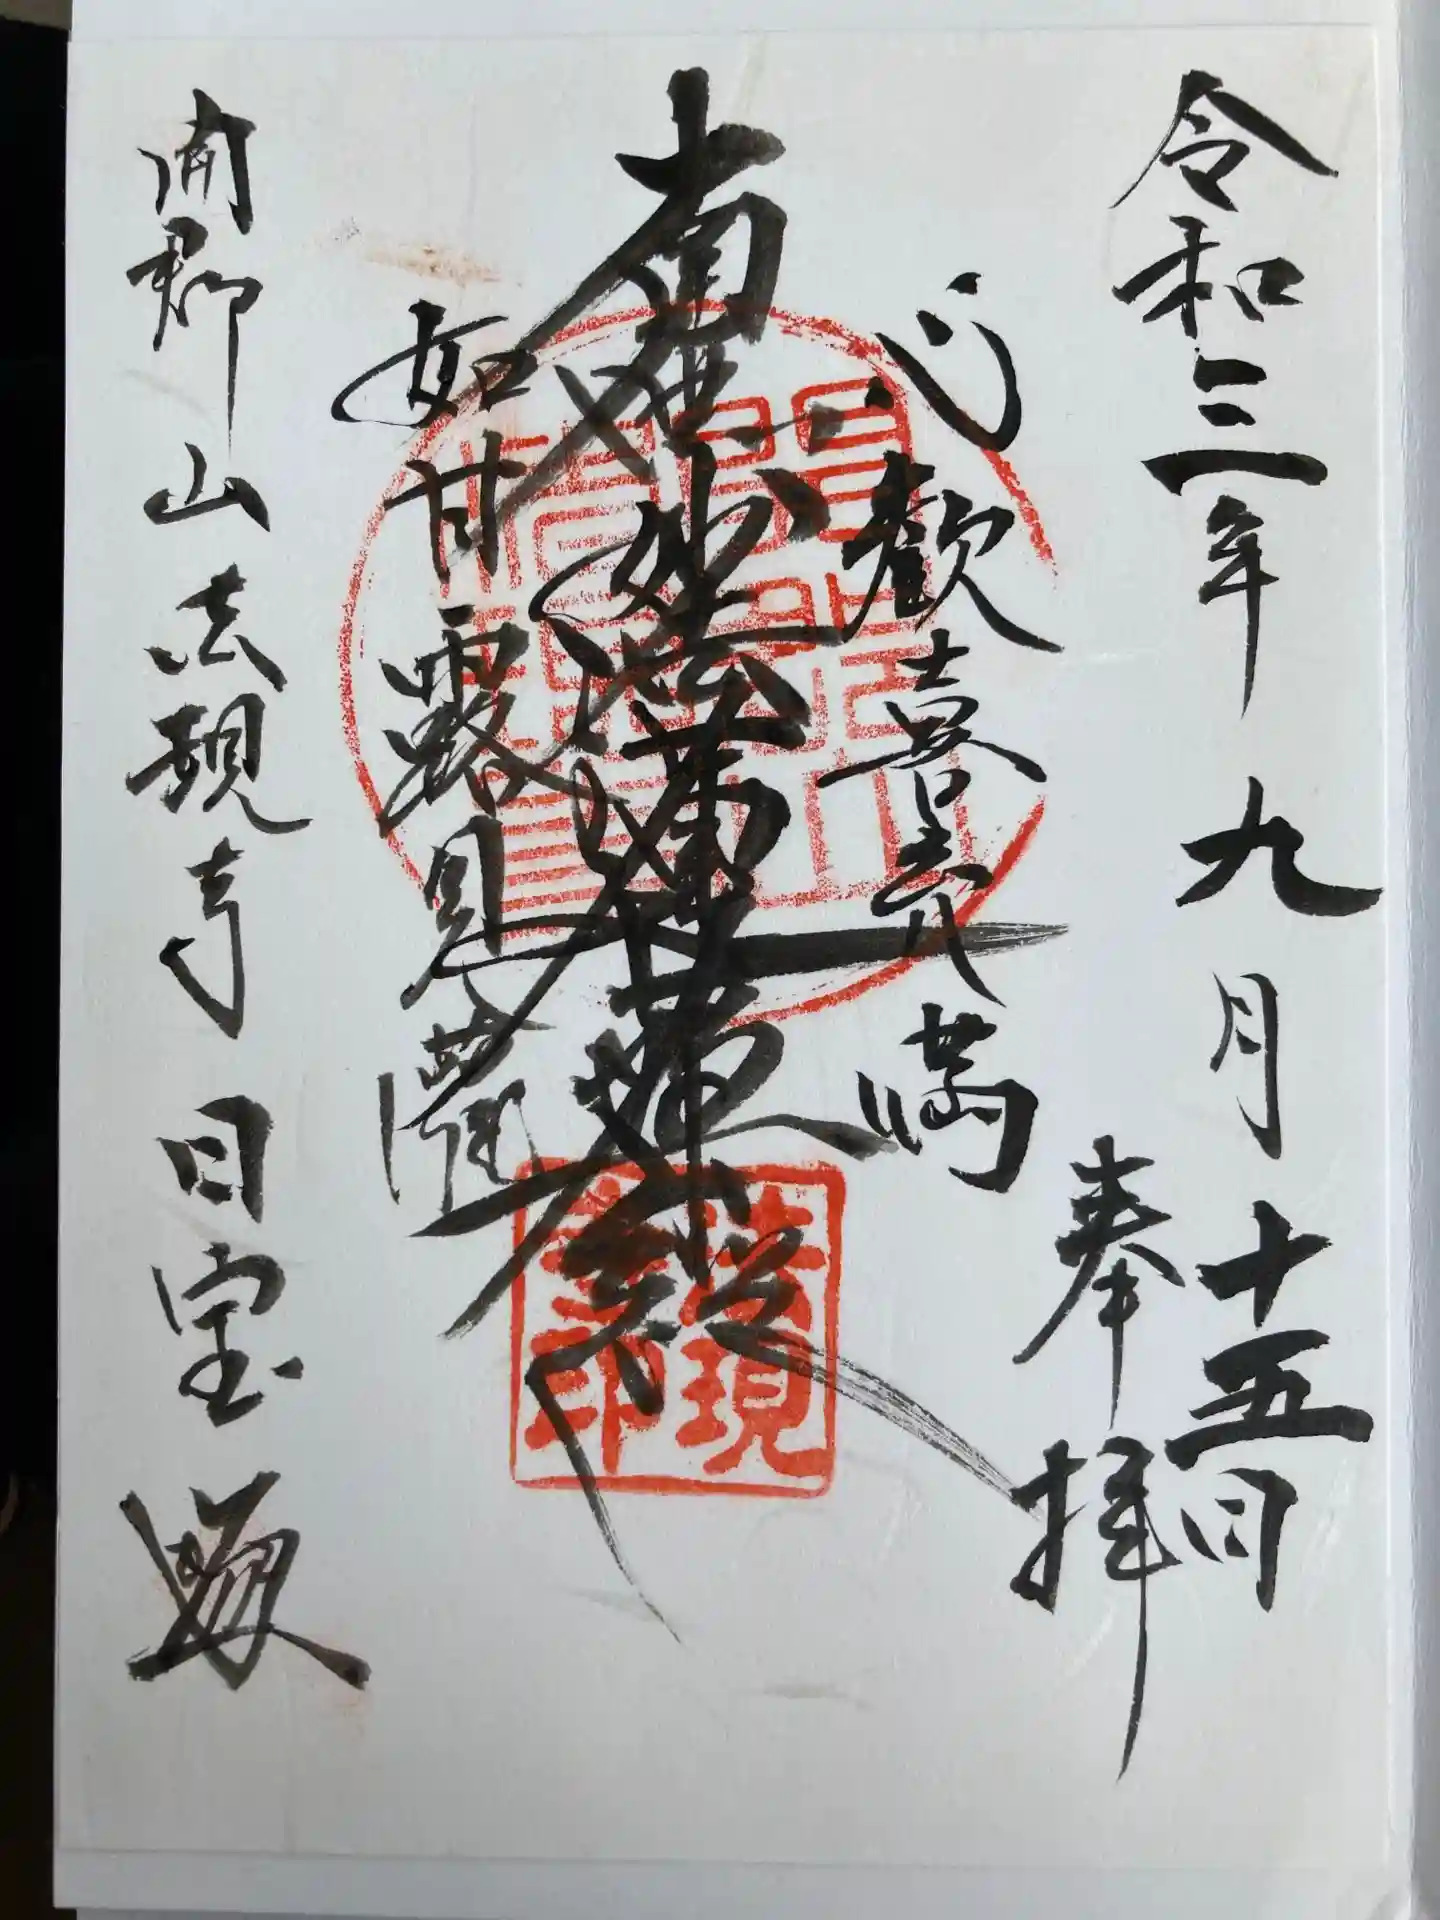 令和三年九月十五日
奉拝
心歓喜充満
南無妙法蓮華経
如甘露見灌
開郡山法現寺日宝
法現
寺印